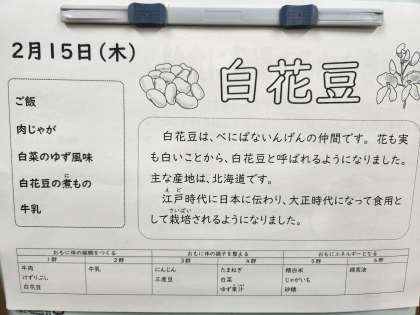 2月15日(木)
白花豆
ご飯
肉じゃが
白菜のゆず風味
白花豆の煮もの
牛乳
白花豆は、べにばないんげんの仲間です。花も実
も白いことから、白花豆と呼ばれるようになりました。
主な産地は、北海道です。
江戸時代に日本に伝わり、大正時代になって食用と
して栽培されるようになりました。
おもに体の組織をつくる おもに体の調子を整える おもにエネルギーとなる
1群 2群 3群 4群 5群 6群
牛肉 牛乳 にんじん たまねぎ 精白米
けずりぶし 三度豆 白菜 じゃがいも
白花豆 ゆず果汁 砂糖